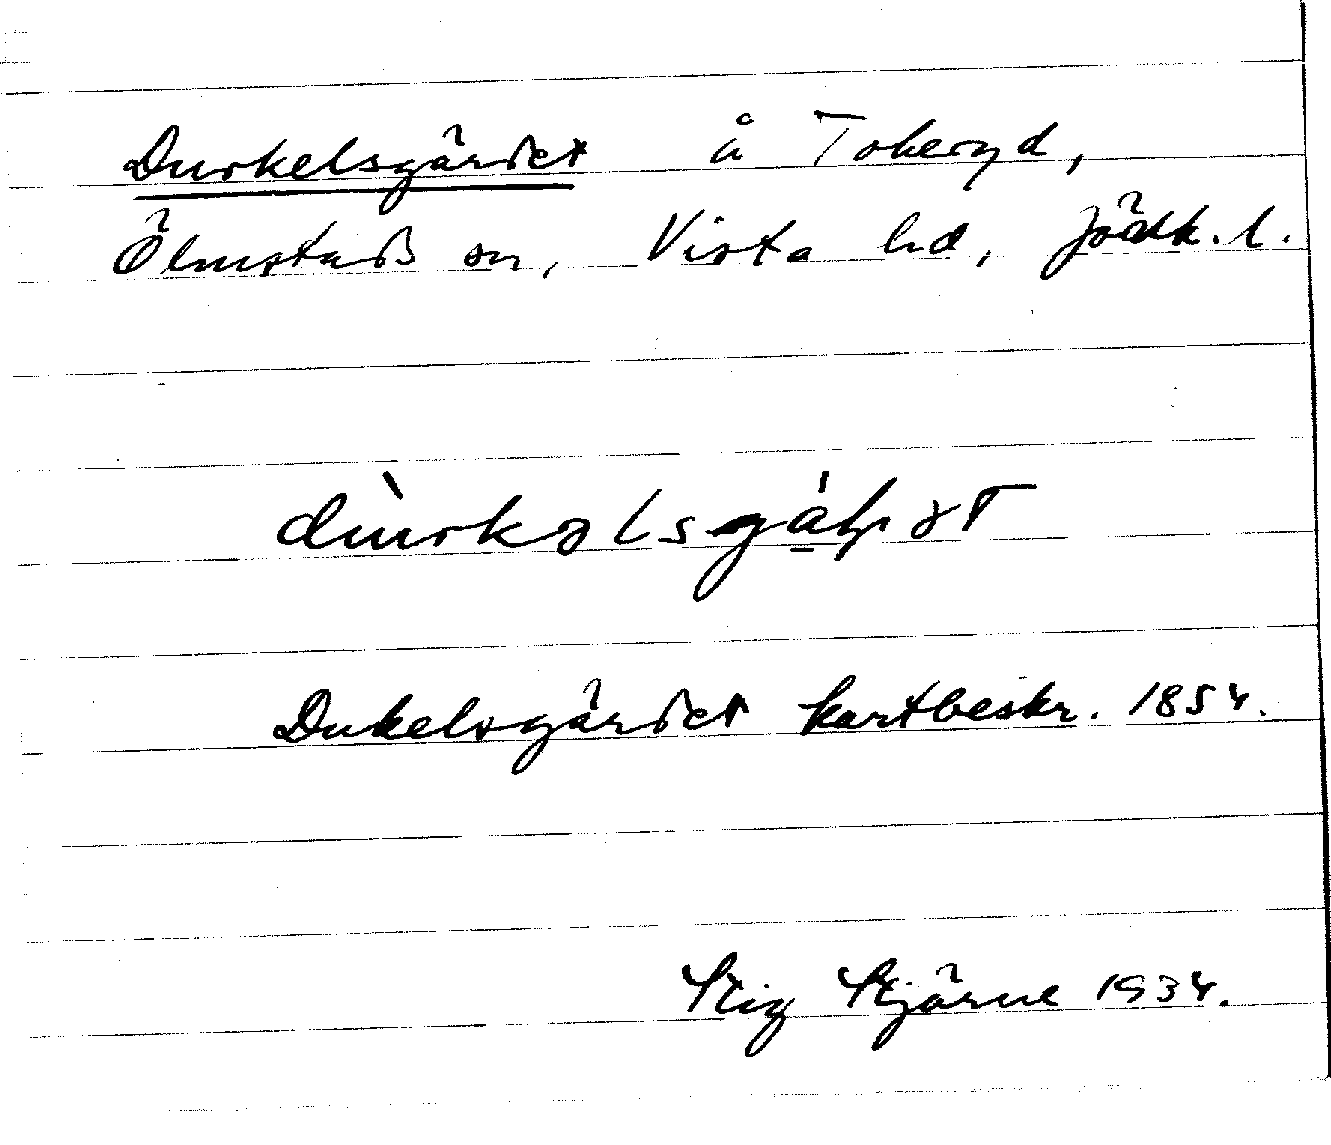 Durkelsgärdet å Tokeryd,
Ölmstads sn, Vista hd, Jödk. l.
Dukelsgärdet kartbeskr. 1854.
Stig Stjärne 1934.